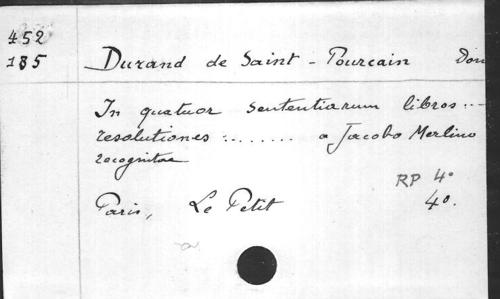 452
185 Durand de Saint-Pourcain Dom
In quatuor sententiarum libros ...
resolutiones ......... a Jacobo Merlino
recognitae
RP 4°
Paris, Le Petit 40.